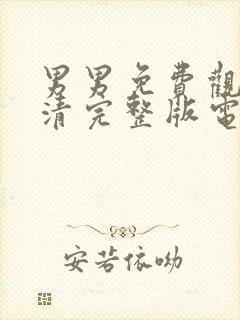 男男免費觀
清完整版電
安若依呦